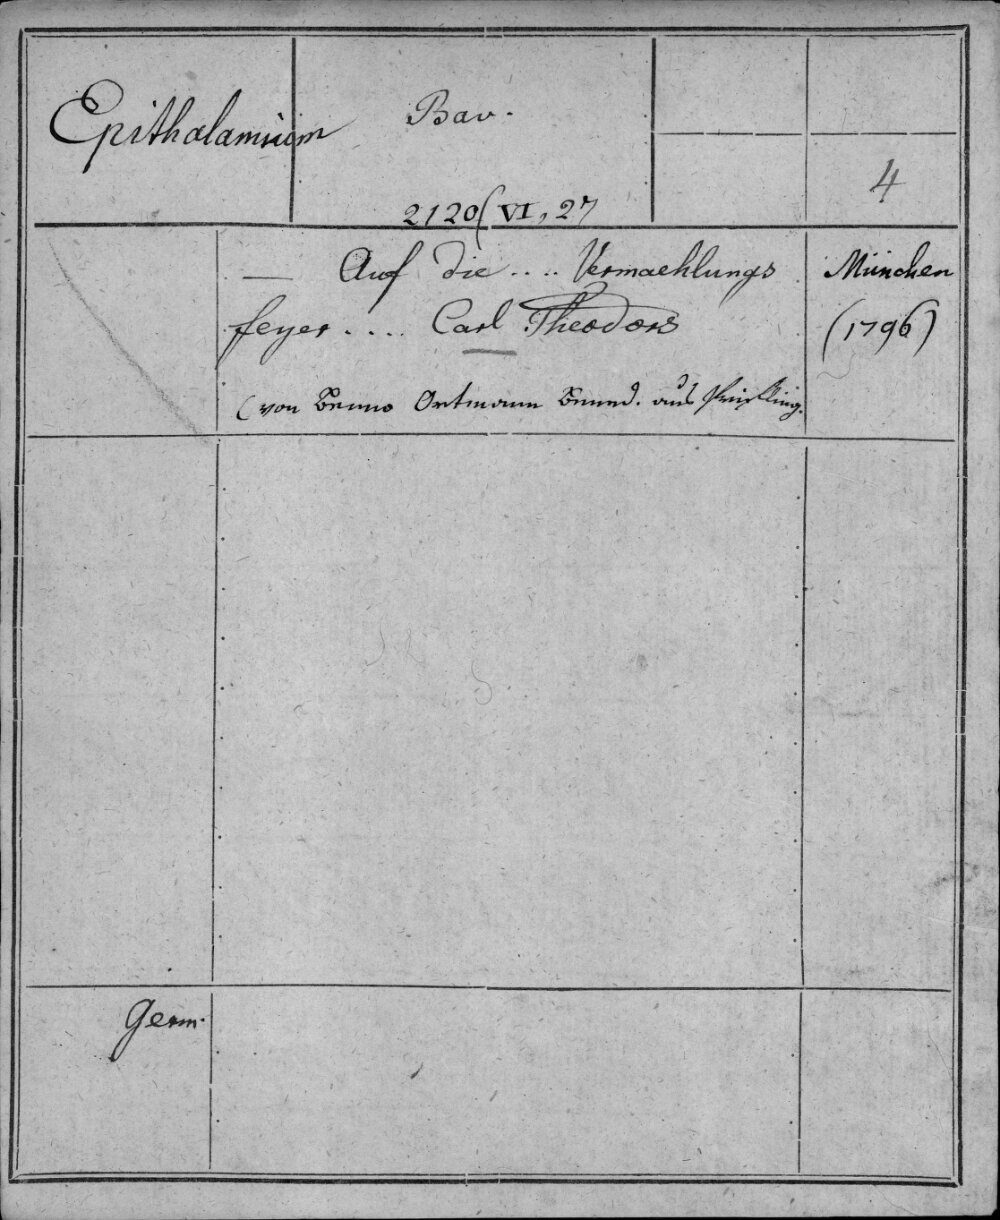 Epithalamium
Bav.
4
2120(VI, 27
— Auf die .... Vermaehlungs
feyer .... Carl Theodors
München
(1796)
(von Benno Ortmann Bened. aus Prifling.
Germ.